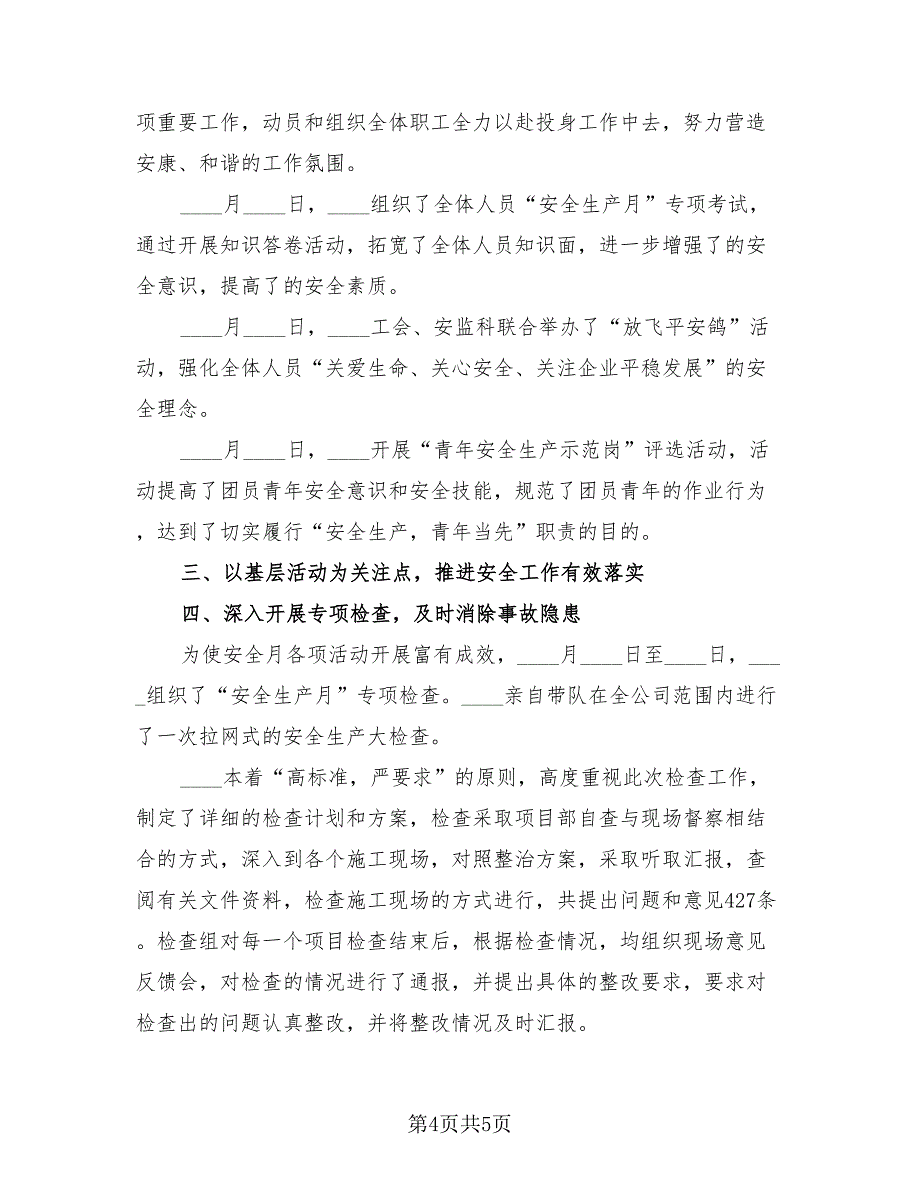 项重要工作，动员和组织全体职工全力以赴投身工作中去，努力营造
安康、和谐的工作氛围。
____月____日，____组织了全体人员“安全生产月”专项考试，
通过开展知识答卷活动，拓宽了全体人员知识面，进一步增强了的安
全意识，提高了的安全素质。
____月____日，____工会、安监科联合举办了“放飞平安鸽”活
动，强化全体人员“关爱生命、关心安全、关注企业平稳发展”的安
全理念。
____月____日，____开展“青年安全生产示范岗”评选活动，活
动提高了团员青年安全意识和安全技能，规范了团员青年的作业行为
，达到了切实履行“安全生产，青年当先”职责的目的。
三、以基层活动为关注点，推进安全工作有效落实
四、深入开展专项检查，及时消除事故隐患
为使安全月各项活动开展富有成效，____月____日至____日，___
_组织了“安全生产月”专项检查。____亲自带队在全公司范围内进行
了一次拉网式的安全生产大检查。
____本着“高标准，严要求”的原则，高度重视此次检查工作，
制定了详细的检查计划和方案，检查采取项目部自查与现场督察相结
合的方式，深入到各个施工现场，对照整治方案，采取听取汇报，查
阅有关文件资料，检查施工现场的方式进行，共提出问题和意见427条
。检查组对每一个项目检查结束后，根据检查情况，均组织现场意见
反馈会，对检查的情况进行了通报，并提出具体的整改要求，要求对
检查出的问题认真整改，并将整改情况及时汇报。
第4页共5页